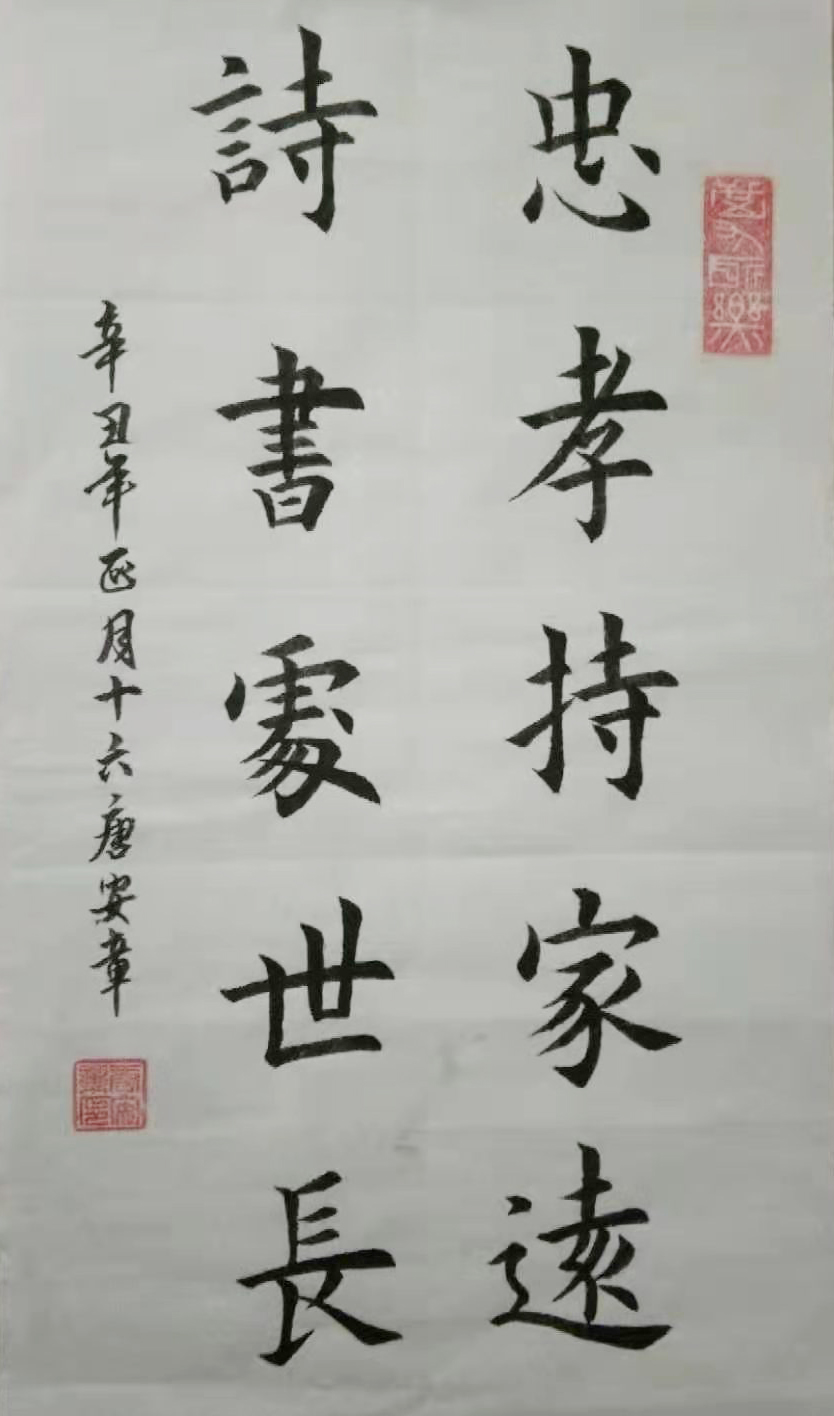 忠孝持家遠
詩書處世長
辛丑年正月十六唐安章